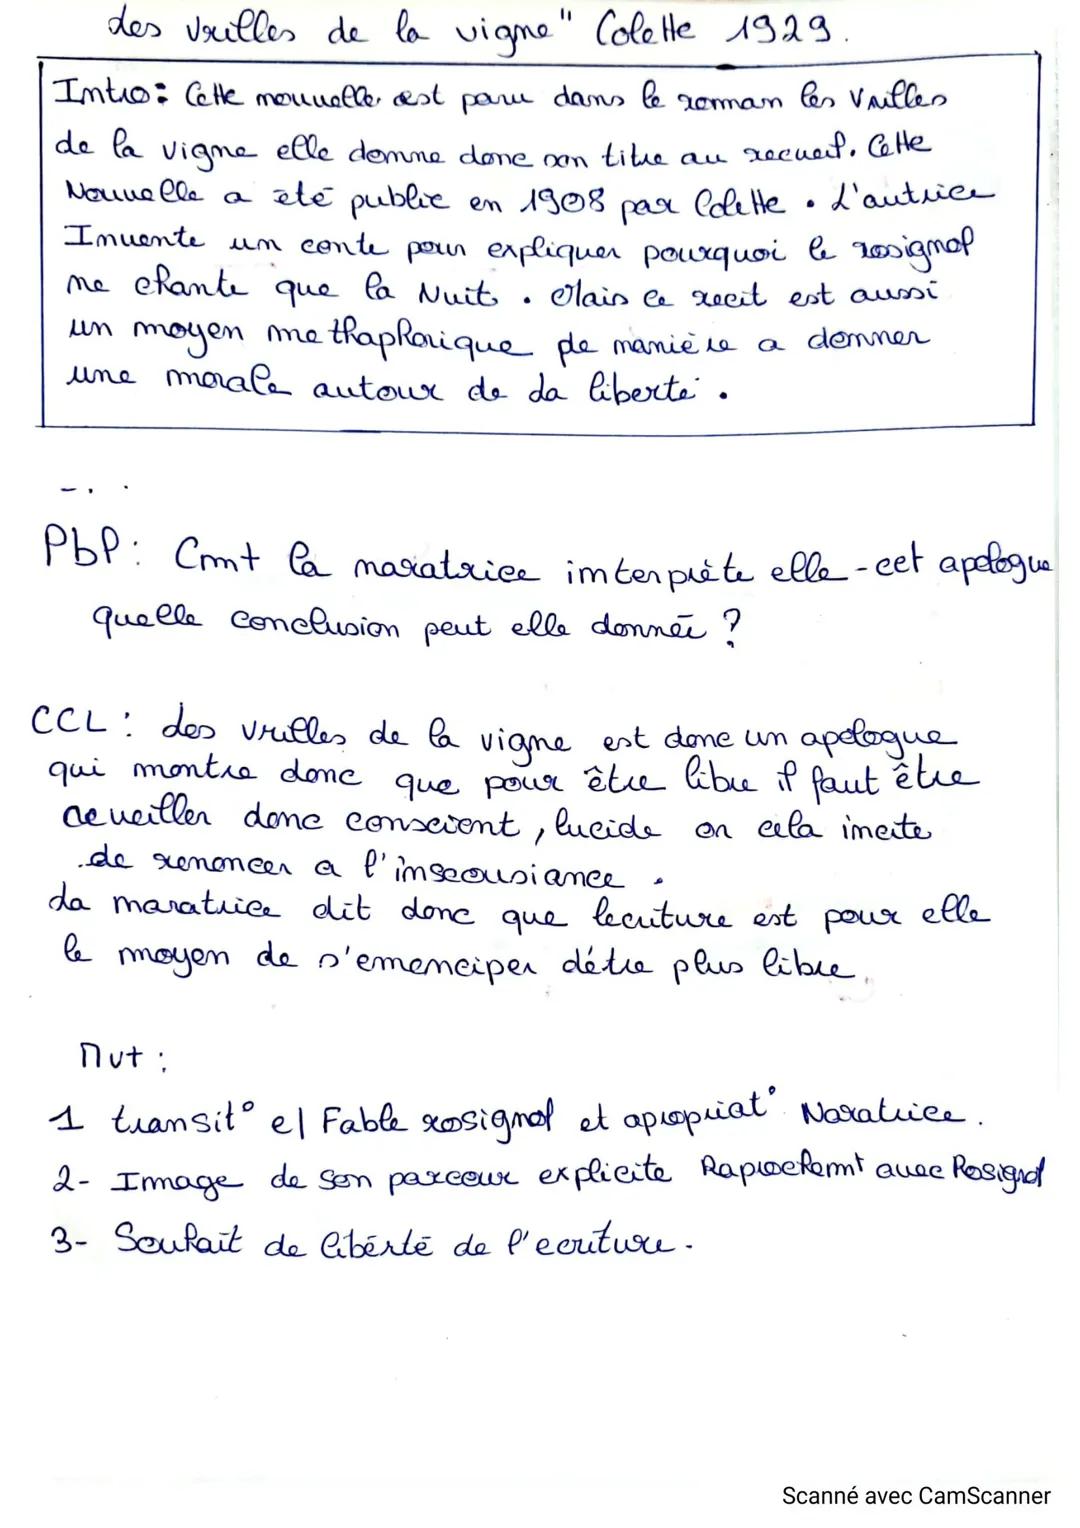 des vrilles de la vigne" Colette 1929.
Intro: Cette nouvelle est paru dans le roman les Vrilles
de la vigne elle donne donc son titre au recueil. Cette
Nouvelle a été public en 1908 par Colette. L'autrice
Invente un conte pour expliquer pourquoi le rosignol
ne chante que la Nuit. Mais ce recit est aussi
un moyen methaphorique de manière a donner
une morale autour de la liberté.
Pbp: Cmt la naratrice interprète elle-cet apologue
quelle conclusion peut elle donnée ?
CCL: des vrilles de la vigne est donc un apologue
qui montre donc que pour être libre il faut être
donc conscient, lucide or cela incite
de renoncer a l'insousiance.
La naratrice dit donc que lecriture est pour elle
le moyen de s'emenciper détre plus libre.
Mvt :
1 transit° e/ Fable rosignol et apropriat° Naratrice.
2- Image de son parcour explicite Raprochemt avec Rosignol
3- Souhait de liberté de l'ecriture.
Scanné avec CamScanner